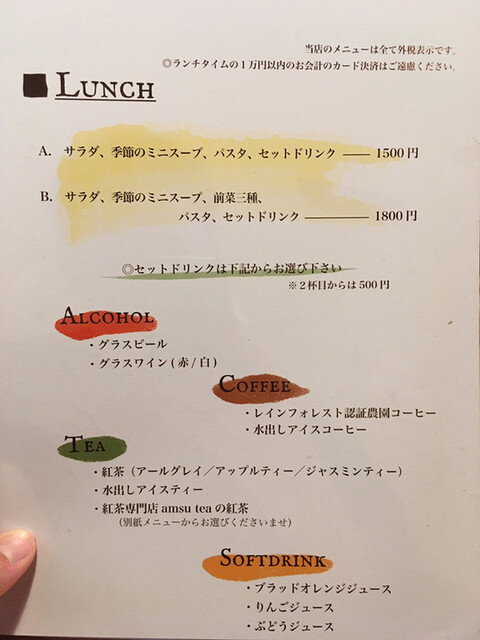 当店のメニューは全て外税表示です。
◎ランチタイムの1万円以内のお会計のカード決済はご遠慮ください。
LUNCH
A. サラダ、季節のミニスープ、パスタ、セットドリンク —— 1500円
B. サラダ、季節のミニスープ、前菜三種、
パスタ、セットドリンク ———— 1800円
◎セットドリンクは下記からお選び下さい
※2杯目からは500円
ALCOHOL
・グラスビール
・グラスワイン(赤/白)
COFFEE
・レインフォレスト認証農園コーヒー
・水出しアイスコーヒー
TEA
・紅茶（アールグレイ／アップルティー／ジャスミンティー）
・水出しアイスティー
・紅茶専門店 amsu tea の紅茶
(別紙メニューからお選びくださいませ)
SOFTDRINK
・ブラッドオレンジジュース
・りんごジュース
・ぶどうジュース